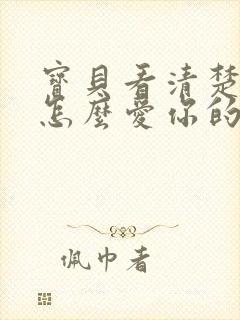 寶貝看清楚
怎麼愛你的
佩巾者